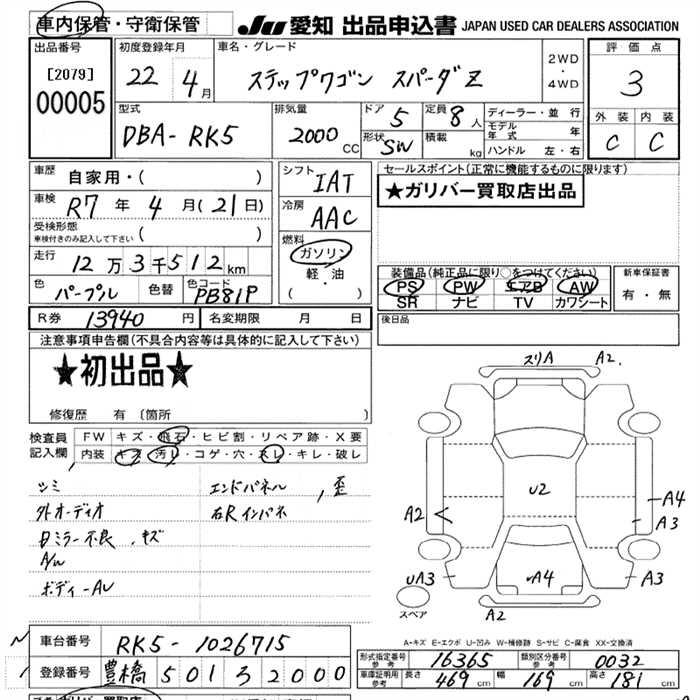 車内保管・守衛保管
JU 愛知 出品申込書 JAPAN USED CAR DEALERS ASSOCIATION
出品番号
[2079]
00005
初度登録年月
22 4月
車名・グレード
ステップワゴン スパーダZ
2WD
・
4WD
評価点
3
外装 内装
C C
型式
DBA-RK5
排気量
2000 CC
ドア 5
形状 SW
定員 8人
積載 kg
ディーラー・並行
モデル年式 年
ハンドル 左・右
車歴
自家用・( )
車検 R7年 4月(21日)
受検形態
車検付きのみ記入して下さい ( )
走行 12万3千512km
色 パープル 色替 色コード PB81P
R券 13940円 名変期限 月 日
シフト IAT
冷房 AAC
燃料
ガソリン
軽・油
( ・ )
セールスポイント(正常に機能するものに限ります)
★ガリバー買取店出品
装備品(純正品に限り○をつけてください)
PS PW エアB AW
SR ナビ TV カワシート
新車保証書
有・無
後日品
注意事項申告欄(不具合内容等は具体的に記入して下さい)
★初出品★
修復歴 有 〔箇所
検査員記入欄
FW キズ・飛石・ヒビ割・リペア跡・X要
内装 キズ・汚レ・コゲ・穴・スレ・キレ・破レ
シミ
外オーディオ
日ミラー不良、キズ
A/W
ボディーAU
エンドパネル、歪
右Rインパネ
スリA A2.
U2
A2
A4
A3
UA3
UA4
A3
A2
スペア
A-キズ E-エクボ U-凹み W-補修跡 S-サビ C-腐食 XX-交換済
車台番号 RK5-1026715
登録番号 豊橋 501 ろ 2000
形式指定番号 参考 16365 類別区分番号 参考 0032
車庫証明用 参考 長さ 469cm 幅 169cm 高さ 181cm
ガリバー買取店